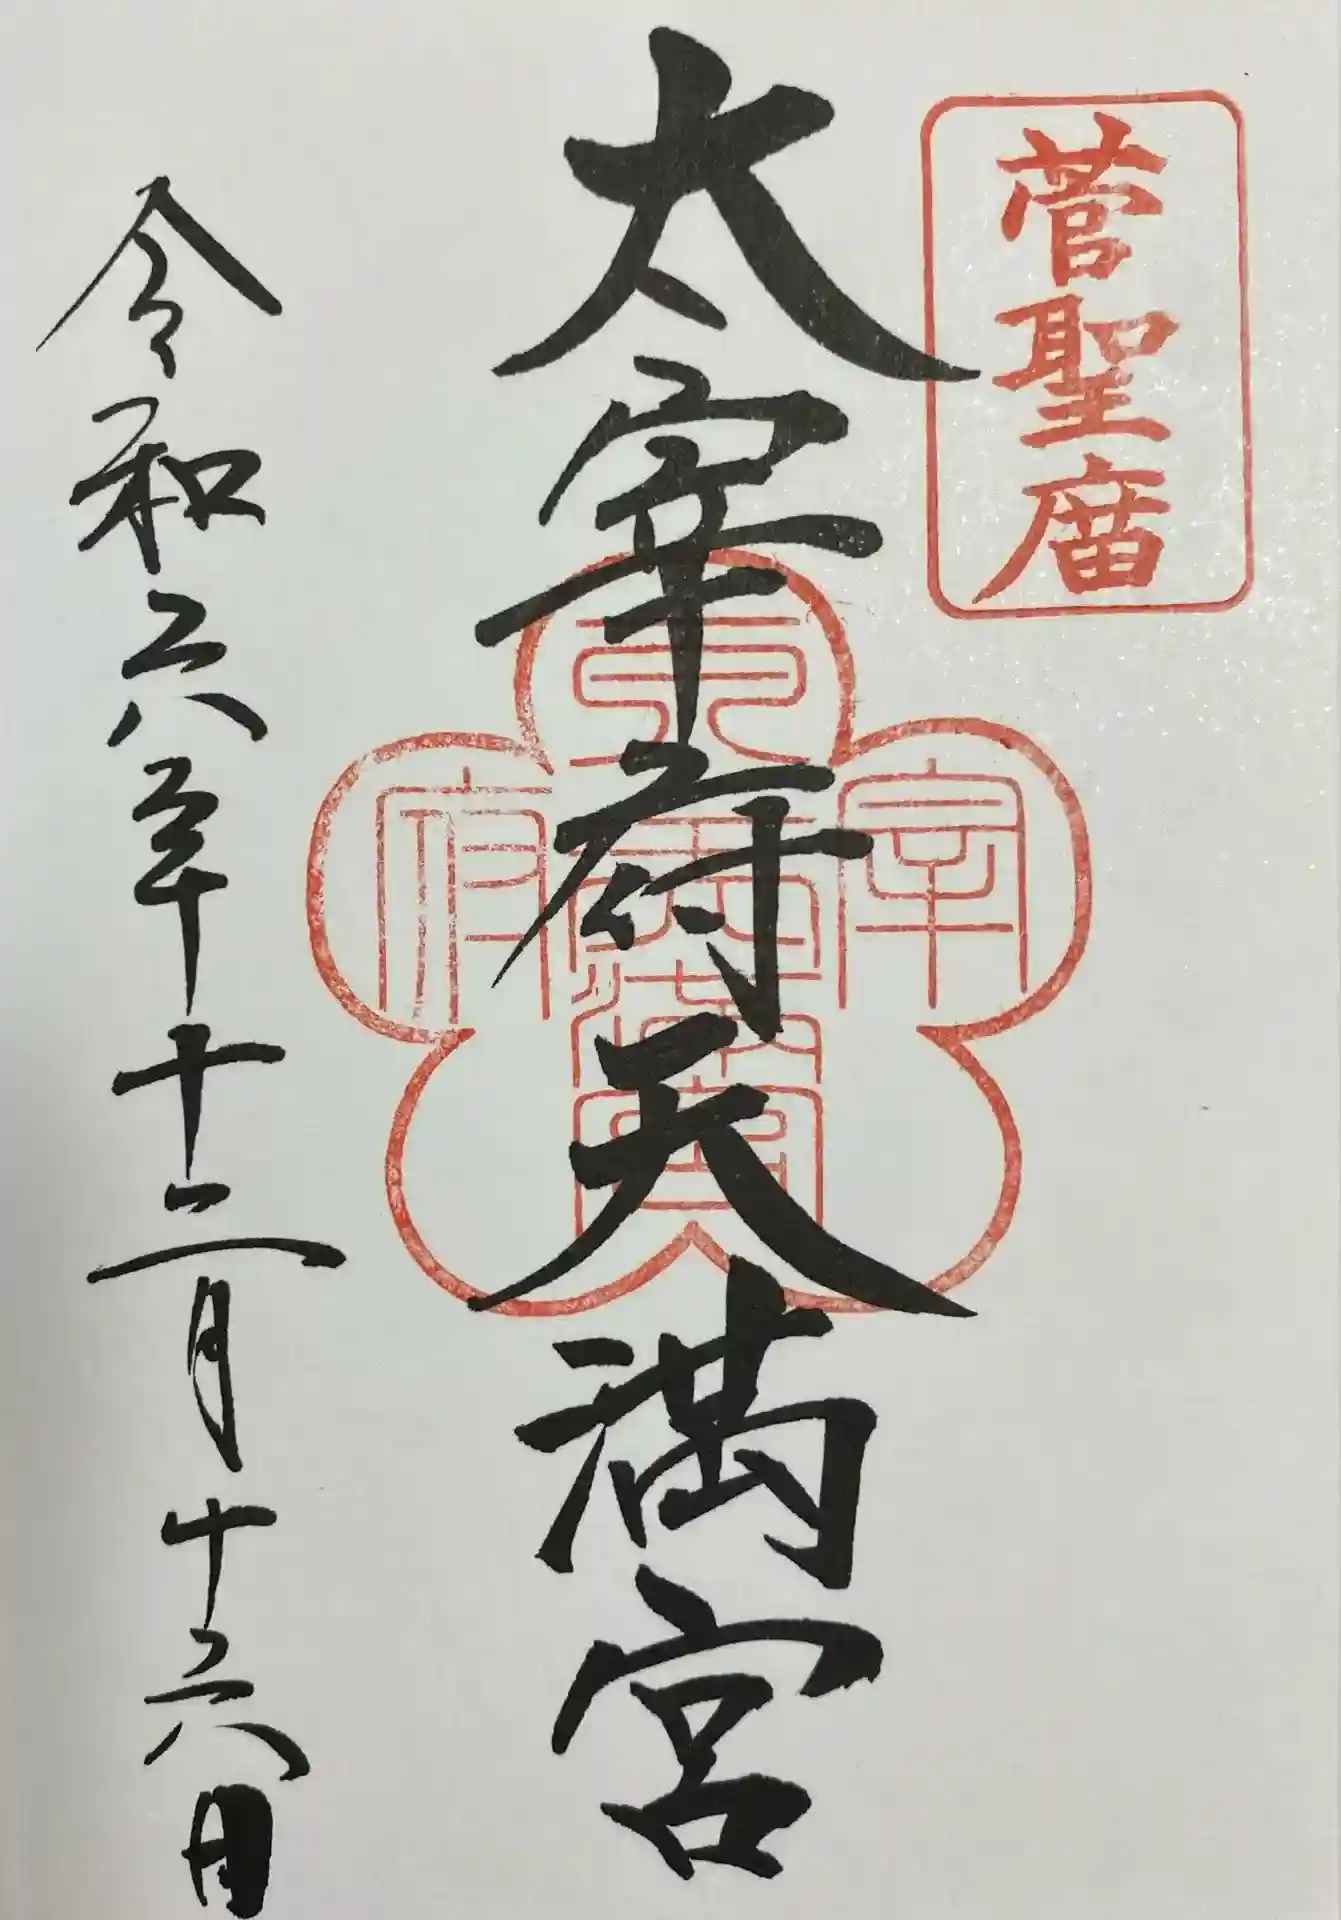 菅聖庿
太宰府天満宮
令和六年十二月十六日
宰
府